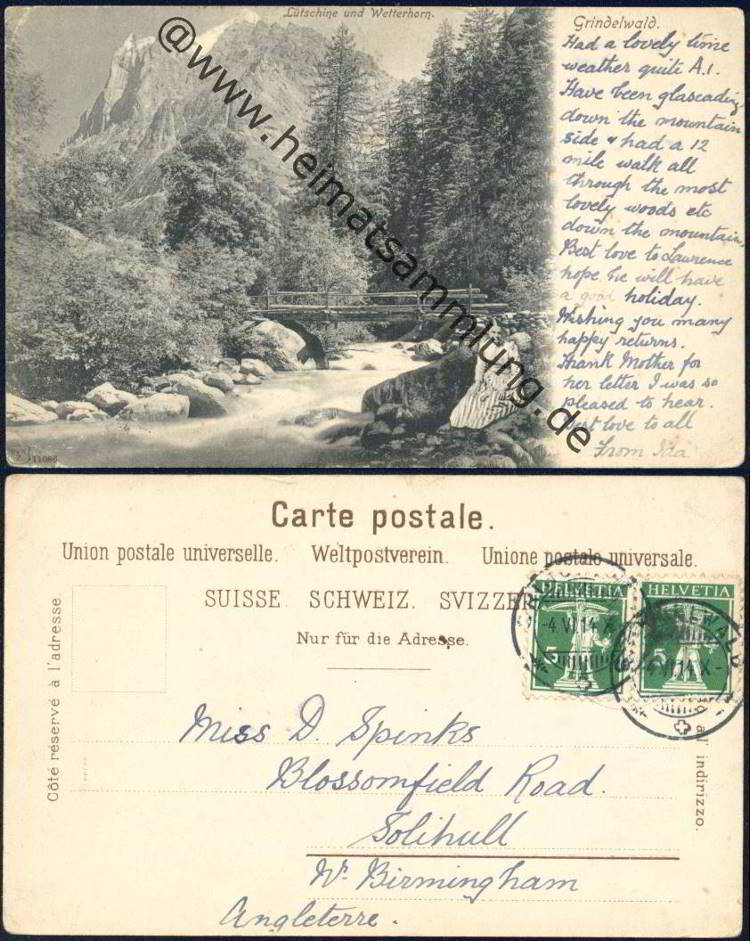 Lütschine und Wetterhorn.
Grindelwald.
Had a lovely time
weather quite A.1.
Have been glascading
down the mountain
side & had a 12
mile walk all
through the most
lovely woods etc
down the mountain.
Best love to Lawrence
hope he will have
a good holiday.
Wishing you many
happy returns.
Thank Mother for
her letter I was so
pleased to hear.
Best love to all
From Ida
11086
@www.heimatsammlung.de
Carte postale.
Union postale universelle. Weltpostverein. Unione postale universale.
SUISSE. SCHWEIZ. SVIZZERA
Nur für die Adresse.
Côté réservé à l'adresse
all' indirizzo.
HELVETIA
5
HELVETIA
5
-4.VI.14.X-
Miss D. Spinks
Blossomfield Road.
Solihull
Nr. Birmingham
Angleterre.